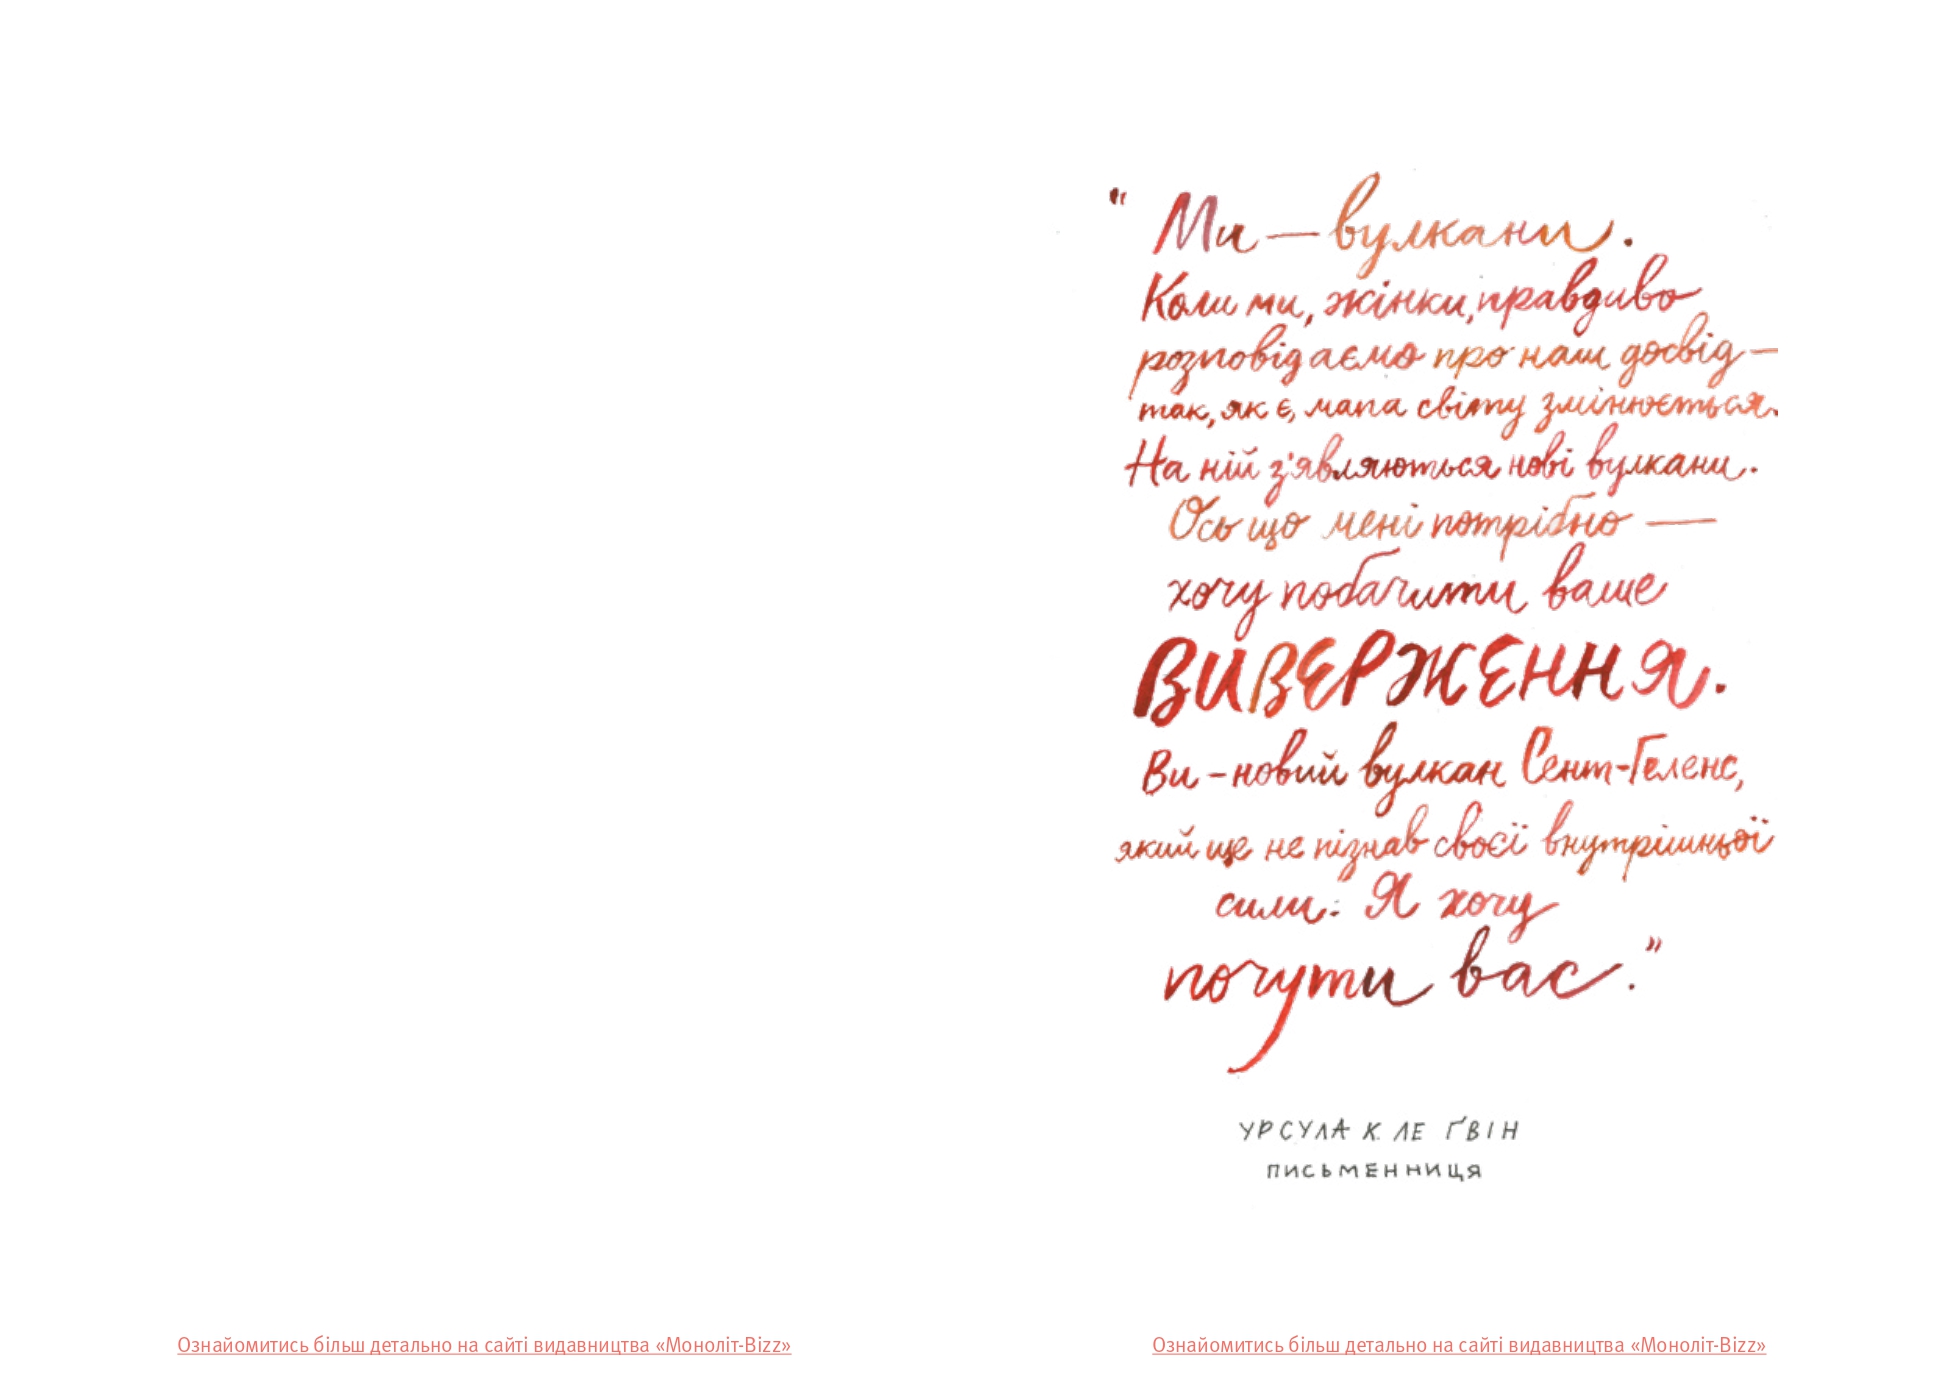 “ Ми — вулкани.
Коли ми, жінки, правдиво
розповідаємо про наш досвід —
так, як є, мапа світу змінюється.
На ній з'являються нові вулкани.
Ось що мені потрібно —
хочу побачити ваше
ВИВЕРЖЕННЯ.
Ви – новий вулкан Сент-Геленс,
який ще не пізнав своєї внутрішньої
сили. Я хочу
почути вас.”
УРСУЛА К. ЛЕ ҐВІН
ПИСЬМЕННИЦЯ
Ознайомитись більш детально на сайті видавництва «Моноліт-Bizz»
Ознайомитись більш детально на сайті видавництва «Моноліт-Bizz»